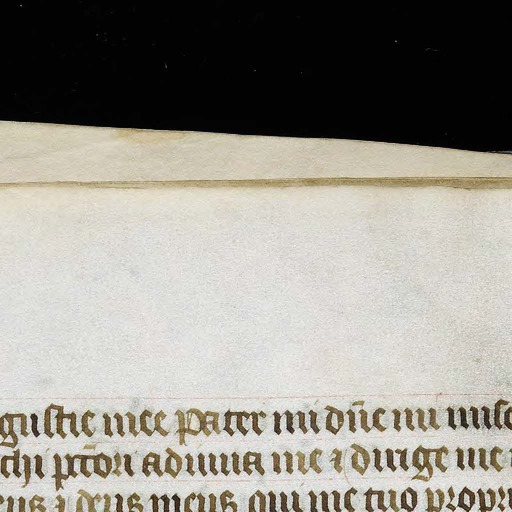 gustie mee Pater mi dn̄e mi mise
chi pct̄ori adiuua me ⁊ dirige me
eus ⁊ deus meus qui me tuo propri